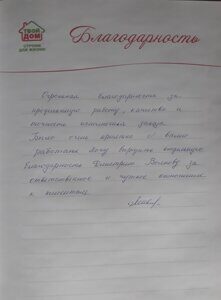 ТВОЙ ДОМ
СТРОИМ ДЛЯ ЖИЗНИ!
Благодарность
Огромная благодарность за
проделанную работу, качество и
точность исполнения заказа.
Было очень приятно с вами
работать. Хочу выразить отдельную
благодарность Дмитрию Волкову за
ответственное и чуткое отношение
к клиентам.